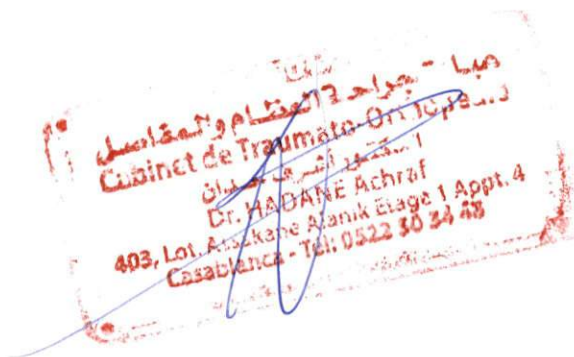 جراحة العظام والمفاصل
Cabinet de Traumato-Orthopédie
الدكتور أشرف
Dr. HADANE Achraf
403, Lot. Assakane Alanik Etage 1 Appt. 4
Casablanca - Tél: 0522 30 34 48